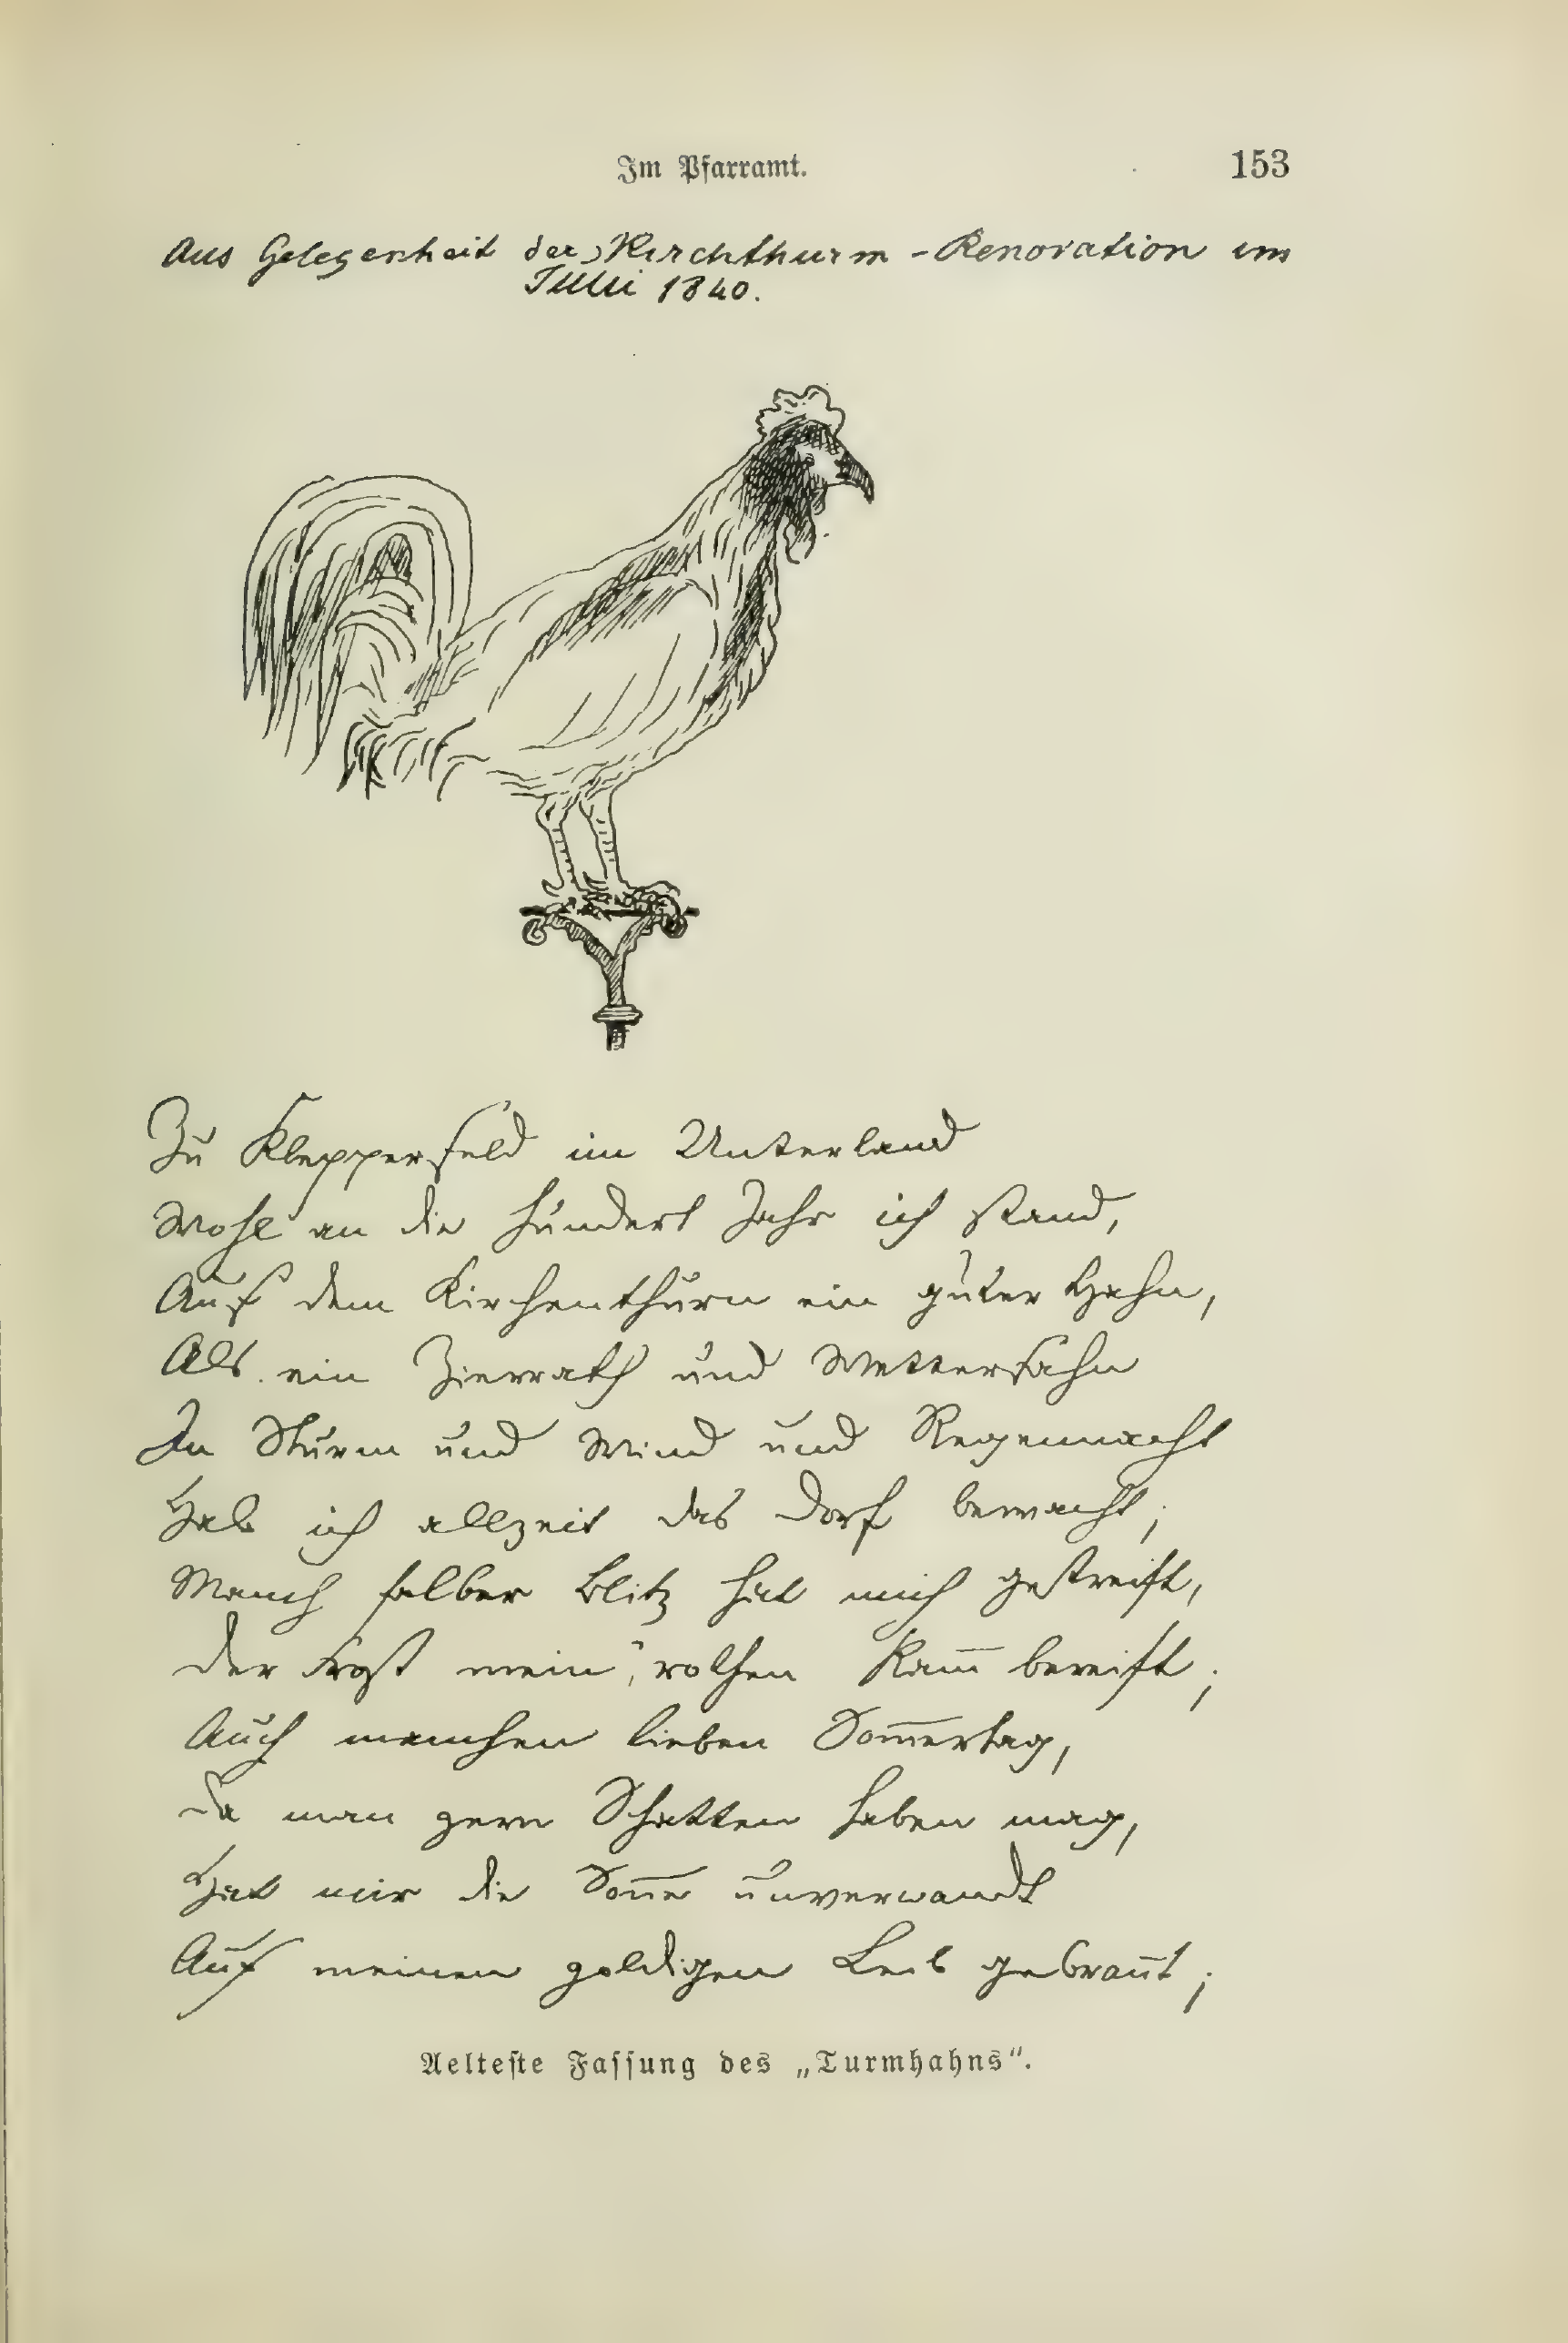 Im Pfarramt.
153
Aus Gelegenheit der Kirchthurm-Renovation im
Juni 1840.
Zu Klepperfeld im Unterland
Wohl an die hundert Jahr ich stand,
Auf dem Kirchenthurn ein guter Hahn,
Als ein Zierrath und Wetterfahn
In Sturm und Wind und Regennacht
Hab ich allzeit das Dorf bewacht;
Manch falber Blitz hat mich gestreift,
Der Frost mein' rothen Kam̄ bereift;
Auch manchen lieben Som̄ertag,
Da man gern Schatten haben mag,
Hat mir die Son̄e unverwandt
Auf meinen goldigen Leib gebran̄t;
Aelteste Fassung des „Turmhahns“.